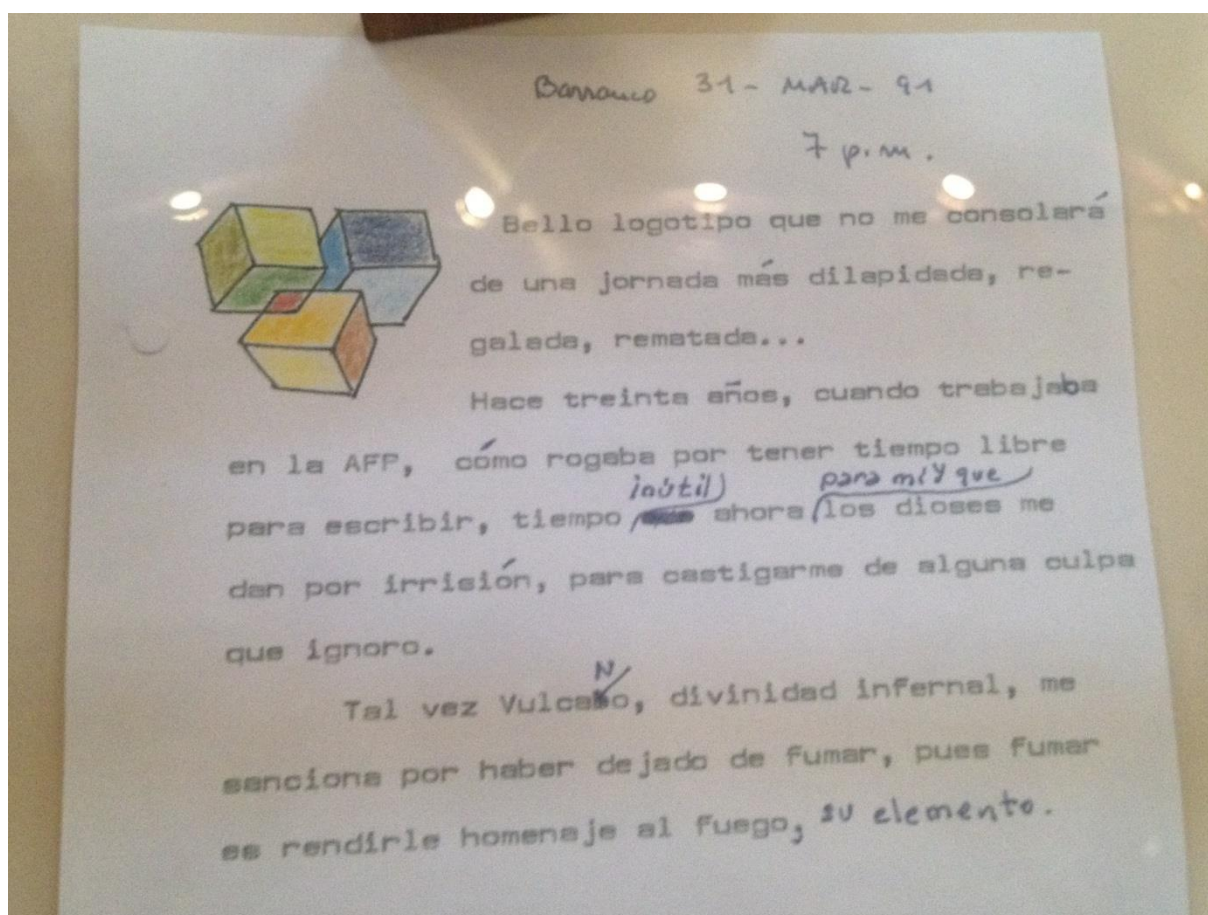 Barranco 31 - MAR - 91
7 p.m.
Bello logotipo que no me consolará
de una jornada más dilapidada, re-
galada, rematada...
Hace treinta años, cuando trabajaba
en la AFP, cómo rogaba por tener tiempo libre
inútil para mí y que
para escribir, tiempo ahora los dioses me
dan por irrisión, para castigarme de alguna culpa
que ignoro.
N
Tal vez Vulcano, divinidad infernal, me
sanciona por haber dejado de fumar, pues fumar
es rendirle homenaje al fuego, su elemento.